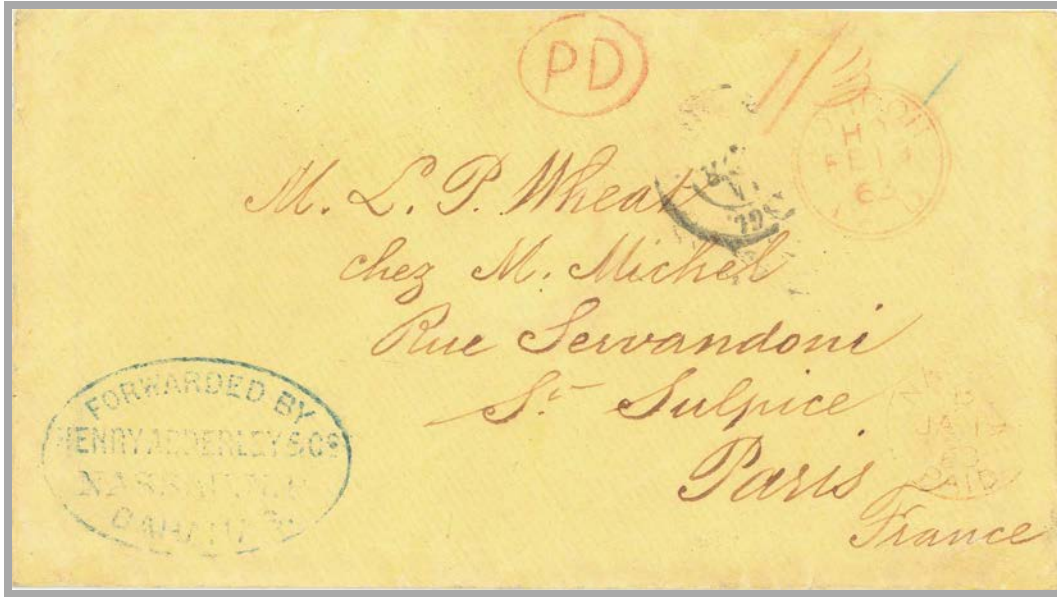 PD
M. L. P. Wheat
chez M. Michel
Rue Servandoni
St Sulpice
Paris
France
FORWARDED BY
HENRY ADDERLEY & Co
NASSAU, N.P.
BAHAMAS
PAID